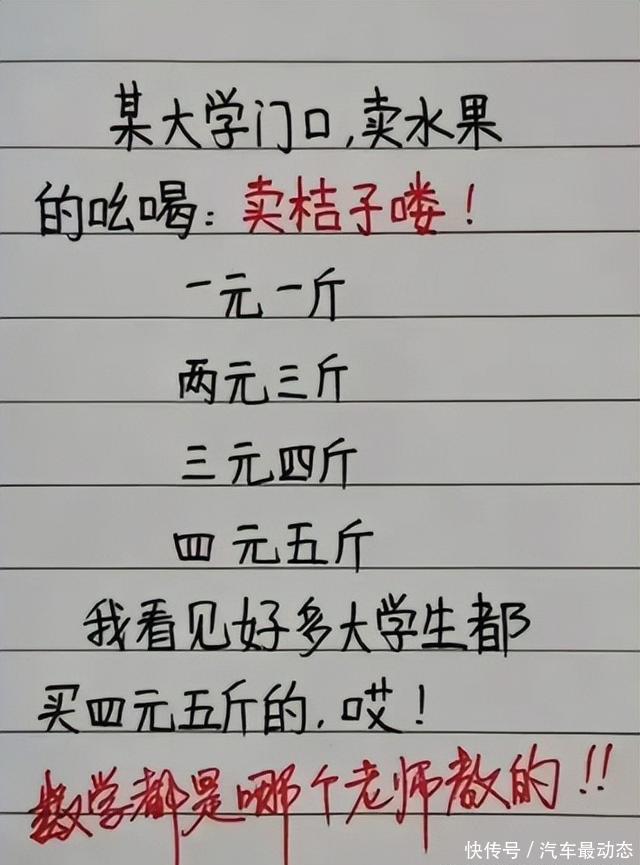 某大学门口,卖水果
的吆喝:卖桔子喽!
一元一斤
两元三斤
三元四斤
四元五斤
我看见好多大学生都
买四元五斤的,哎!
数学都是哪个老师教的!!
快传号/汽车最动态